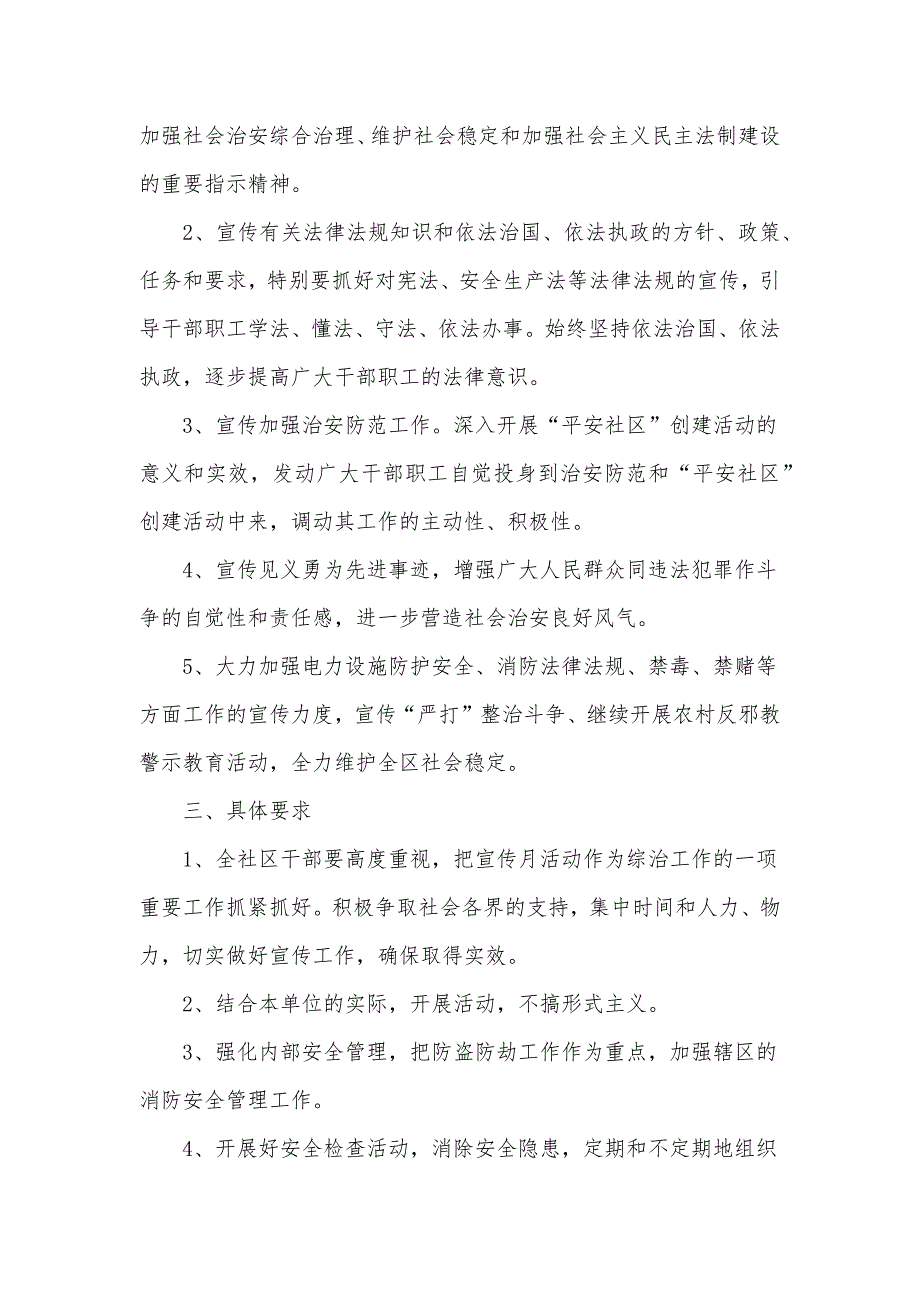 加强社会治安综合治理、维护社会稳定和加强社会主义民主法制建设
的重要指示精神。
2、宣传有关法律法规知识和依法治国、依法执政的方针、政策、
任务和要求，特别要抓好对宪法、安全生产法等法律法规的宣传，引
导干部职工学法、懂法、守法、依法办事。始终坚持依法治国、依法
执政，逐步提高广大干部职工的法律意识。
3、宣传加强治安防范工作。深入开展“平安社区”创建活动的
意义和实效，发动广大干部职工自觉投身到治安防范和“平安社区”
创建活动中来，调动其工作的主动性、积极性。
4、宣传见义勇为先进事迹，增强广大人民群众同违法犯罪作斗
争的自觉性和责任感，进一步营造社会治安良好风气。
5、大力加强电力设施防护安全、消防法律法规、禁毒、禁赌等
方面工作的宣传力度，宣传“严打”整治斗争、继续开展农村反邪教
警示教育活动，全力维护全区社会稳定。
三、具体要求
1、全社区干部要高度重视，把宣传月活动作为综治工作的一项
重要工作抓紧抓好。积极争取社会各界的支持，集中时间和人力、物
力，切实做好宣传工作，确保取得实效。
2、结合本单位的实际，开展活动，不搞形式主义。
3、强化内部安全管理，把防盗防劫工作作为重点，加强辖区的
消防安全管理工作。
4、开展好安全检查活动，消除安全隐患，定期和不定期地组织